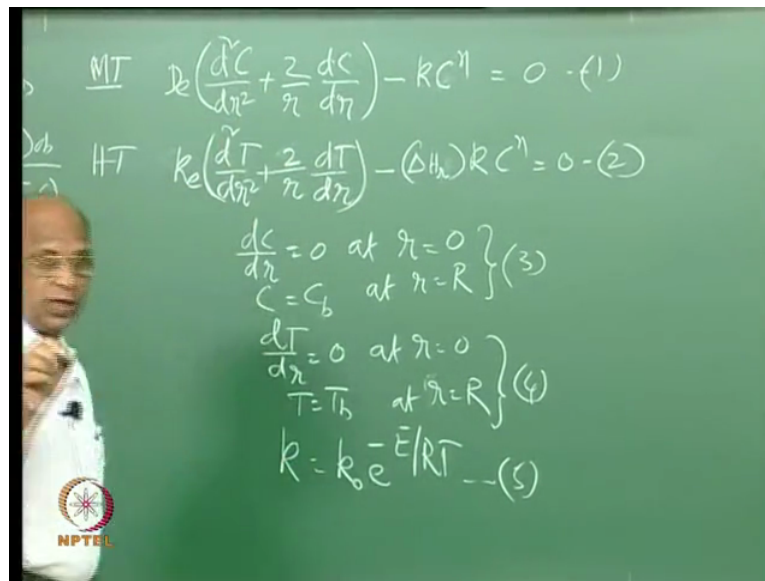 MT De(d²C/dr² + 2/r dC/dr) - kCⁿ = 0 -(1)
HT ke(d²T/dr² + 2/r dT/dr) - (ΔHr) k Cⁿ = 0 -(2)
dC/dr = 0 at r = 0
C = Cb at r = R } (3)
dT/dr = 0 at r = 0
T = Tb at r = R } (4)
k = k₀ e^-E/RT --(5)
NPTEL